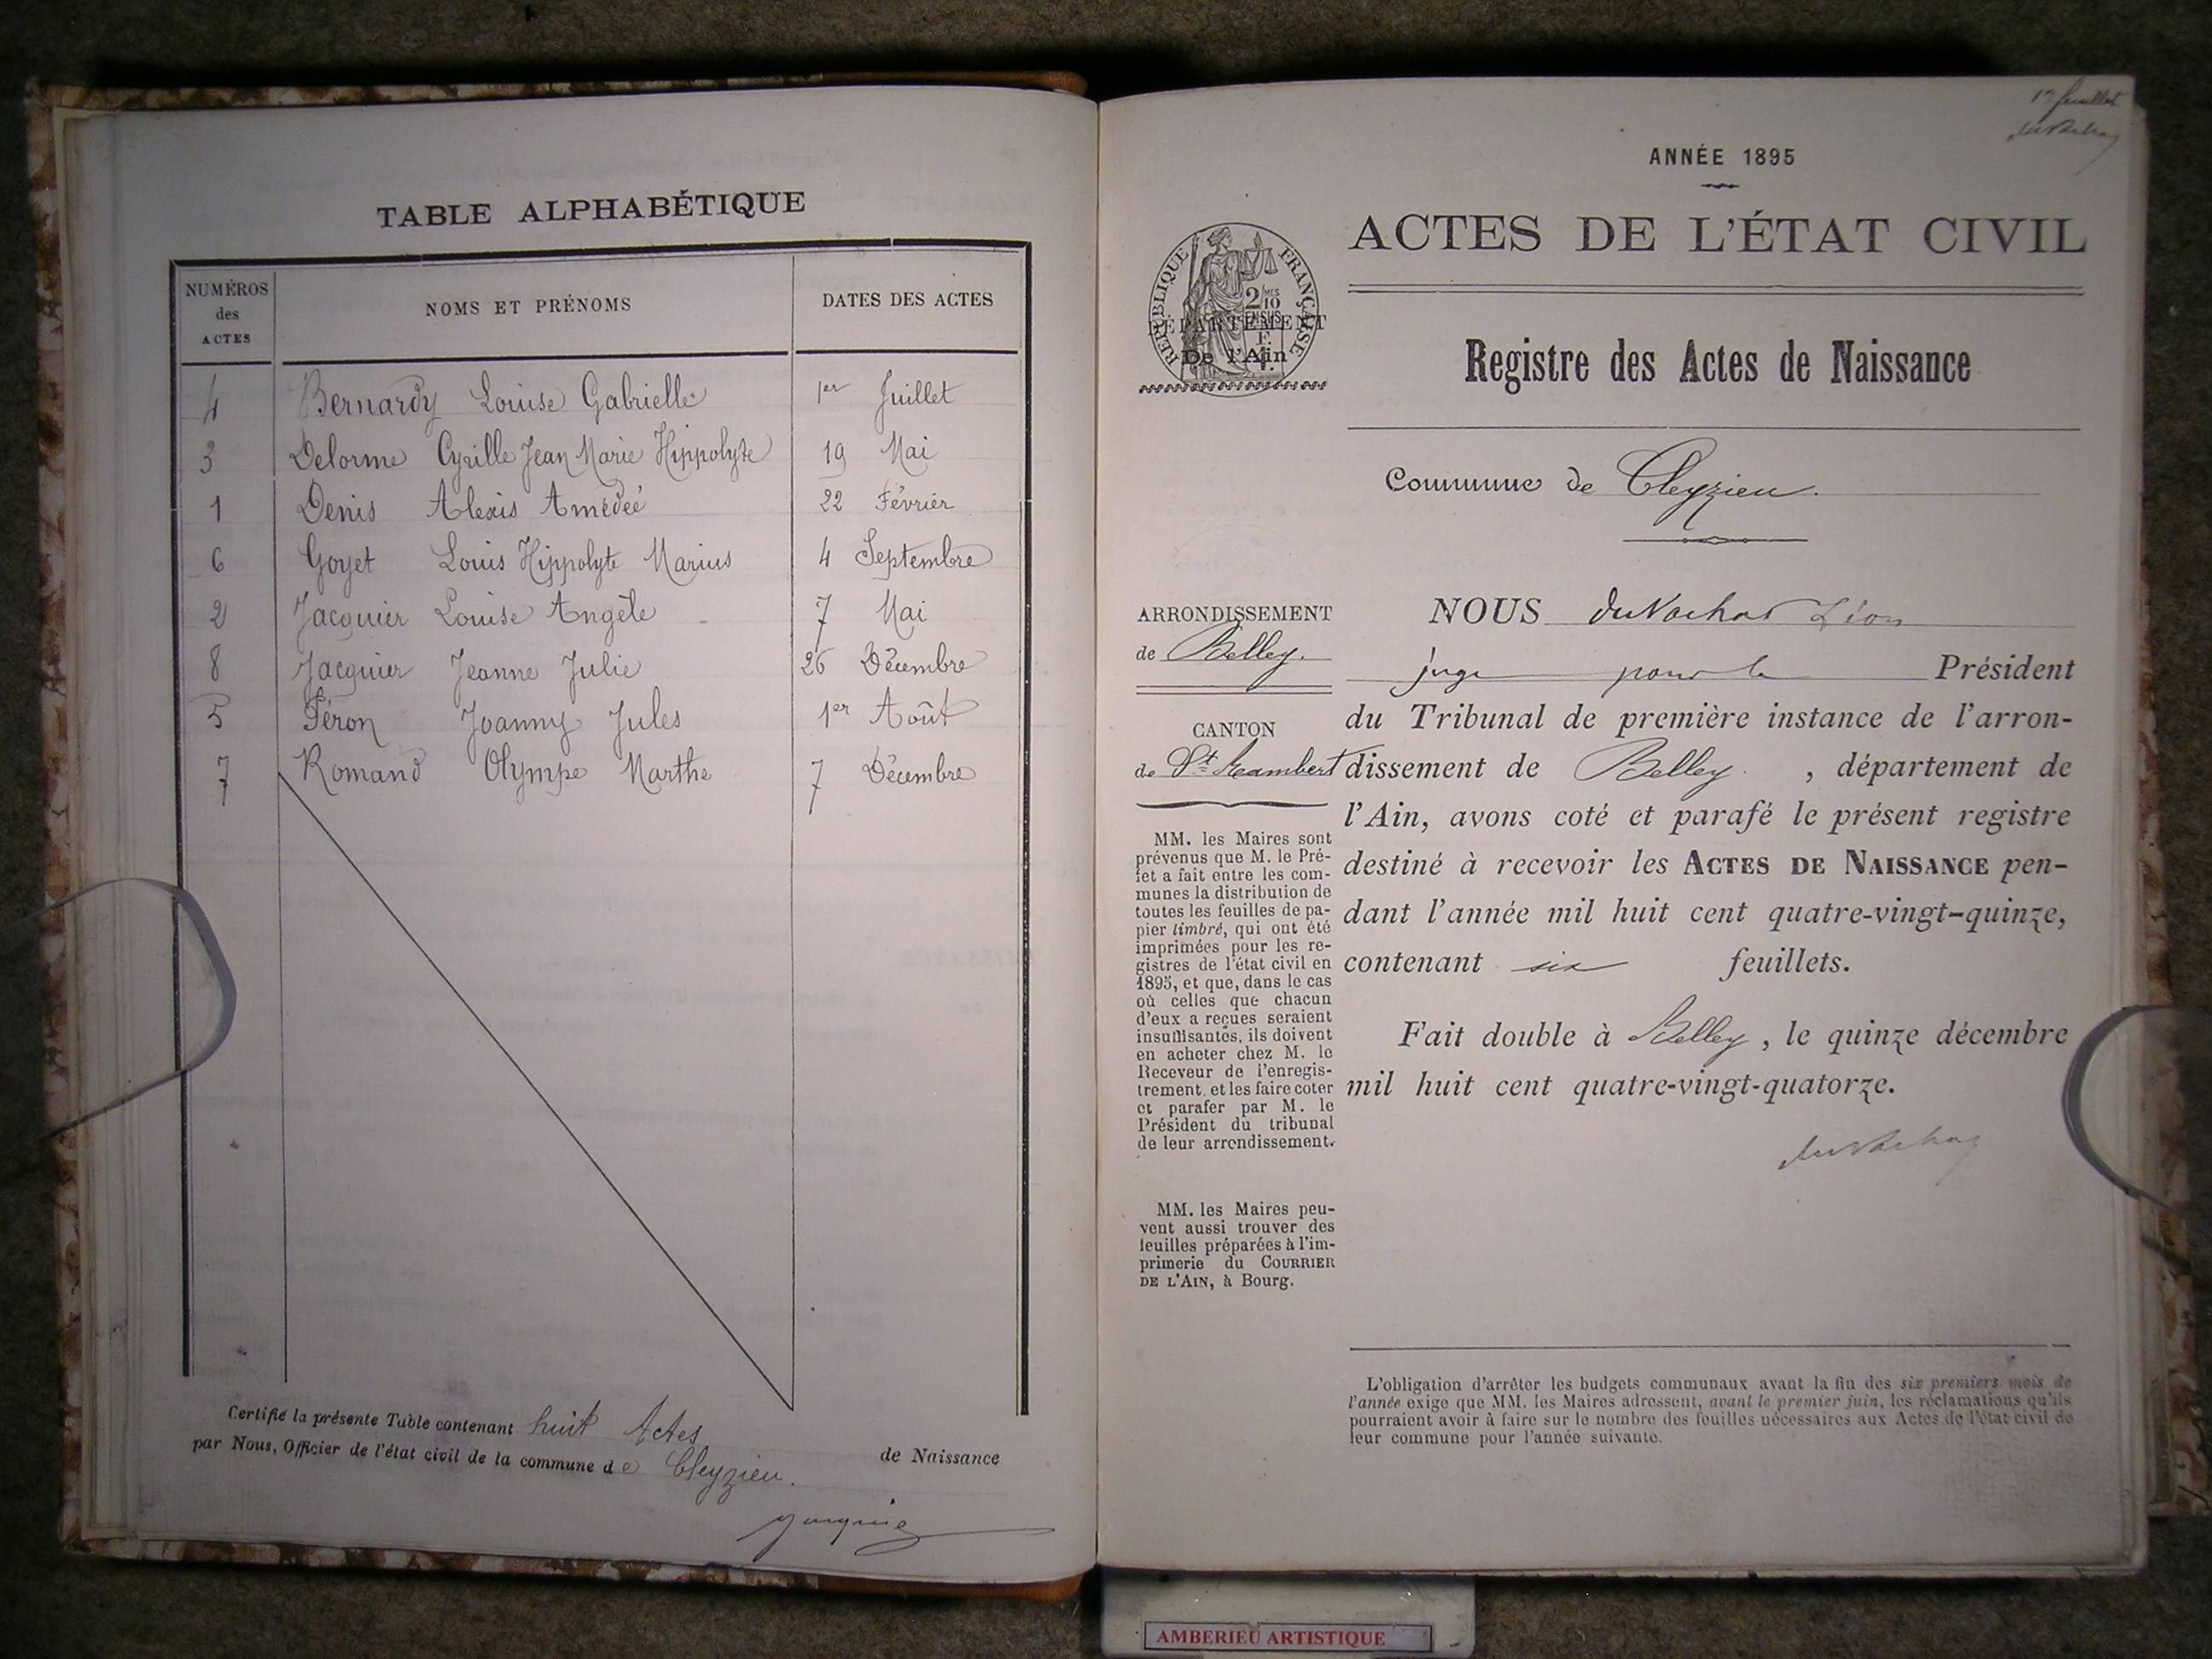 TABLE ALPHABÉTIQUE
NUMÉROS des ACTES NOMS ET PRÉNOMS DATES DES ACTES
4 Bernardy Louise Gabrielle 1er Juillet
3 Delorme Cyrille Jean Marie Hippolyte 19 Mai
1 Denis Alexis Amédée 22 Février
6 Goyet Louis Hippolyte Marius 4 Septembre
2 Jacquier Louise Angèle 7 Mai
8 Jacquier Jeanne Julie 26 Décembre
5 Péron Joanny Jules 1er Août
7 Romand Olympe Marthe 7 Décembre
Certifié la présente Table contenant huit Actes
de Naissance
par Nous, Officier de l'état civil de la commune de Cleyzieu.
1er feuillet
ANNÉE 1895
ACTES DE L'ÉTAT CIVIL
RÉPUBLIQUE FRANÇAISE
2/10
MES
EN SUS
DÉPARTEMENT
De l'Ain
Registre des Actes de Naissance
Commune de Cleyzieu.
ARRONDISSEMENT
de Belley.
CANTON
de St Rambert
MM. les Maires sont
prévenus que M. le Pré-
fet a fait entre les com-
munes la distribution de
toutes les feuilles de pa-
pier timbré, qui ont été
imprimées pour les re-
gistres de l'état civil en
1895, et que, dans le cas
où celles que chacun
d'eux a reçues seraient
insuffisantes, ils doivent
en acheter chez M. le
Receveur de l'enregis-
trement, et les faire coter
et parafer par M. le
Président du tribunal
de leur arrondissement.
MM. les Maires peu-
vent aussi trouver des
feuilles préparées à l'im-
primerie du COURRIER
DE L'AIN, à Bourg.
NOUS duVachat Léon
juge pour le Président
du Tribunal de première instance de l'arron-
dissement de Belley. , département de
l'Ain, avons coté et parafé le présent registre
destiné à recevoir les ACTES DE NAISSANCE pen-
dant l'année mil huit cent quatre-vingt-quinze,
contenant six feuillets.
Fait double à Belley, le quinze décembre
mil huit cent quatre-vingt-quatorze.
duVachat
L'obligation d'arrêter les budgets communaux avant la fin des six premiers mois de
l'année exige que MM. les Maires adressent, avant le premier juin, les réclamations qu'ils
pourraient avoir à faire sur le nombre des feuilles nécessaires aux Actes de l'état civil de
leur commune pour l'année suivante.
AMBERIEU ARTISTIQUE